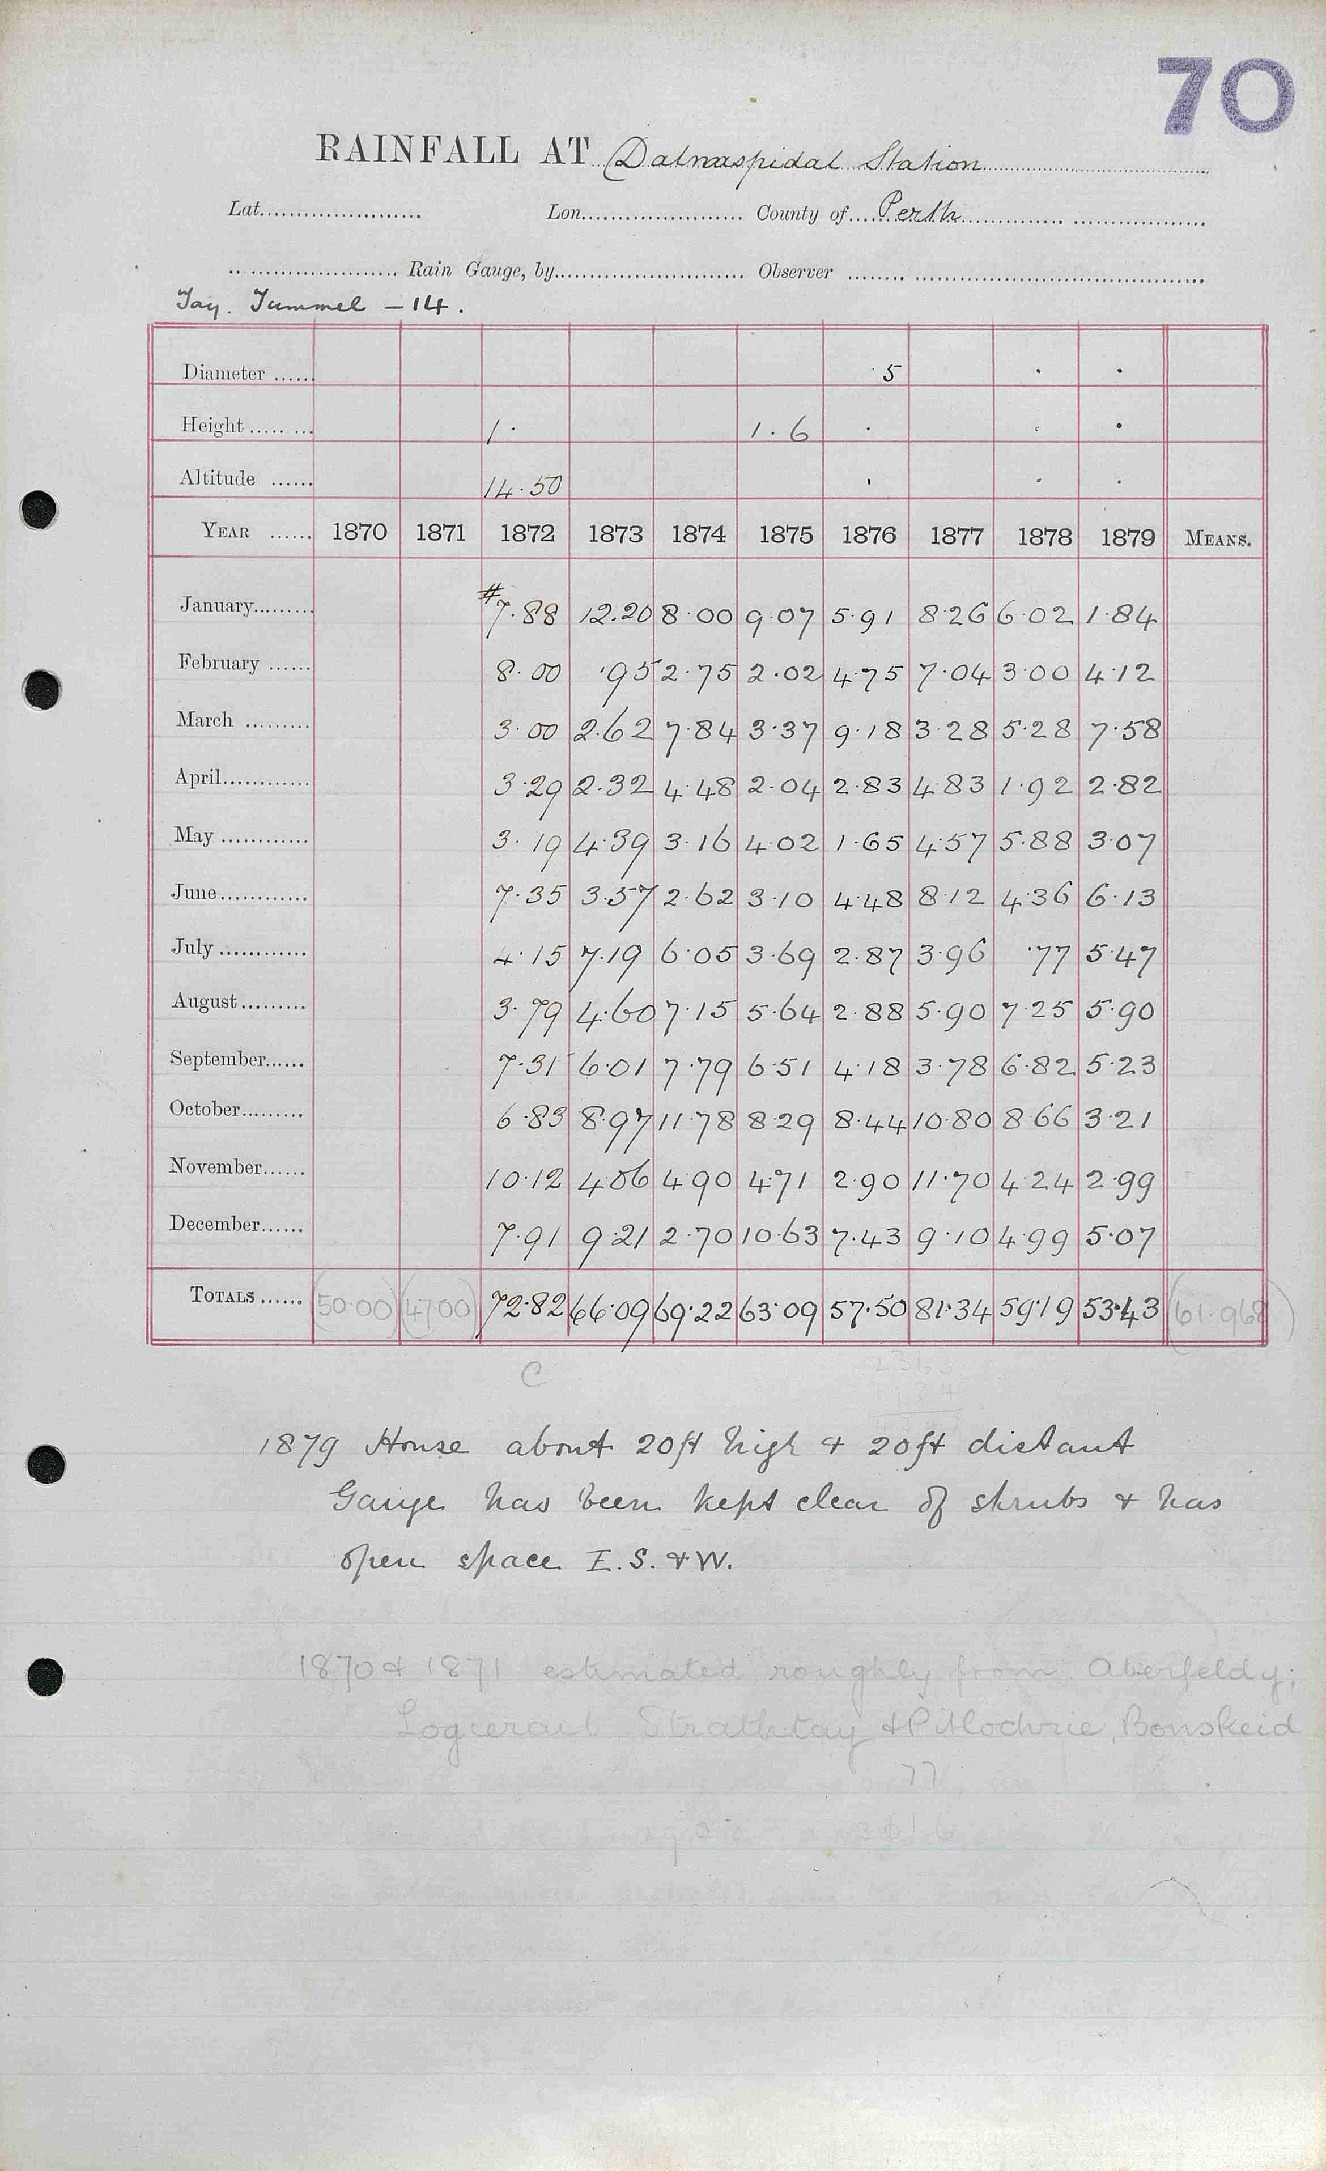 70
RAINFALL AT Dalnaspidal Station
Lat. Lon. County of Perth
Rain Gauge, by Observer
Tay. Tummel - 14.
Diameter 5 . .
Height 1. 1.6 . . .
Altitude 14.50 . . .
YEAR 1870 1871 1872 1873 1874 1875 1876 1877 1878 1879 MEANS.
January #7.88 12.20 8.00 9.07 5.91 8.26 6.02 1.84
February 8.00 .95 2.75 2.02 4.75 7.04 3.00 4.12
March 3.00 2.62 7.84 3.37 9.18 3.28 5.28 7.58
April 3.29 2.32 4.48 2.04 2.83 4.83 1.92 2.82
May 3.19 4.39 3.16 4.02 1.65 4.57 5.88 3.07
June 7.35 3.57 2.62 3.10 4.48 8.12 4.36 6.13
July 4.15 7.19 6.05 3.69 2.87 3.96 .77 5.47
August 3.79 4.60 7.15 5.64 2.88 5.90 7.25 5.90
September 7.31 6.01 7.79 6.51 4.18 3.78 6.82 5.23
October 6.83 8.97 11.78 8.29 8.44 10.80 8.66 3.21
November 10.12 4.06 4.90 4.71 2.90 11.70 4.24 2.99
December 7.91 9.21 2.70 10.63 7.43 9.10 4.99 5.07
TOTALS (50.00) (47.00) 72.82 66.09 69.22 63.09 57.50 81.34 59.19 53.43 (61.968)
C
1879 House about 20ft high & 20ft distant
Gauge has been kept clear of shrubs & has
open space E.S. & W.
1870 & 1871 estimated roughly from Aberfeldy;
Logierait, Strathtay & Pitlochrie, Bonskeid
77